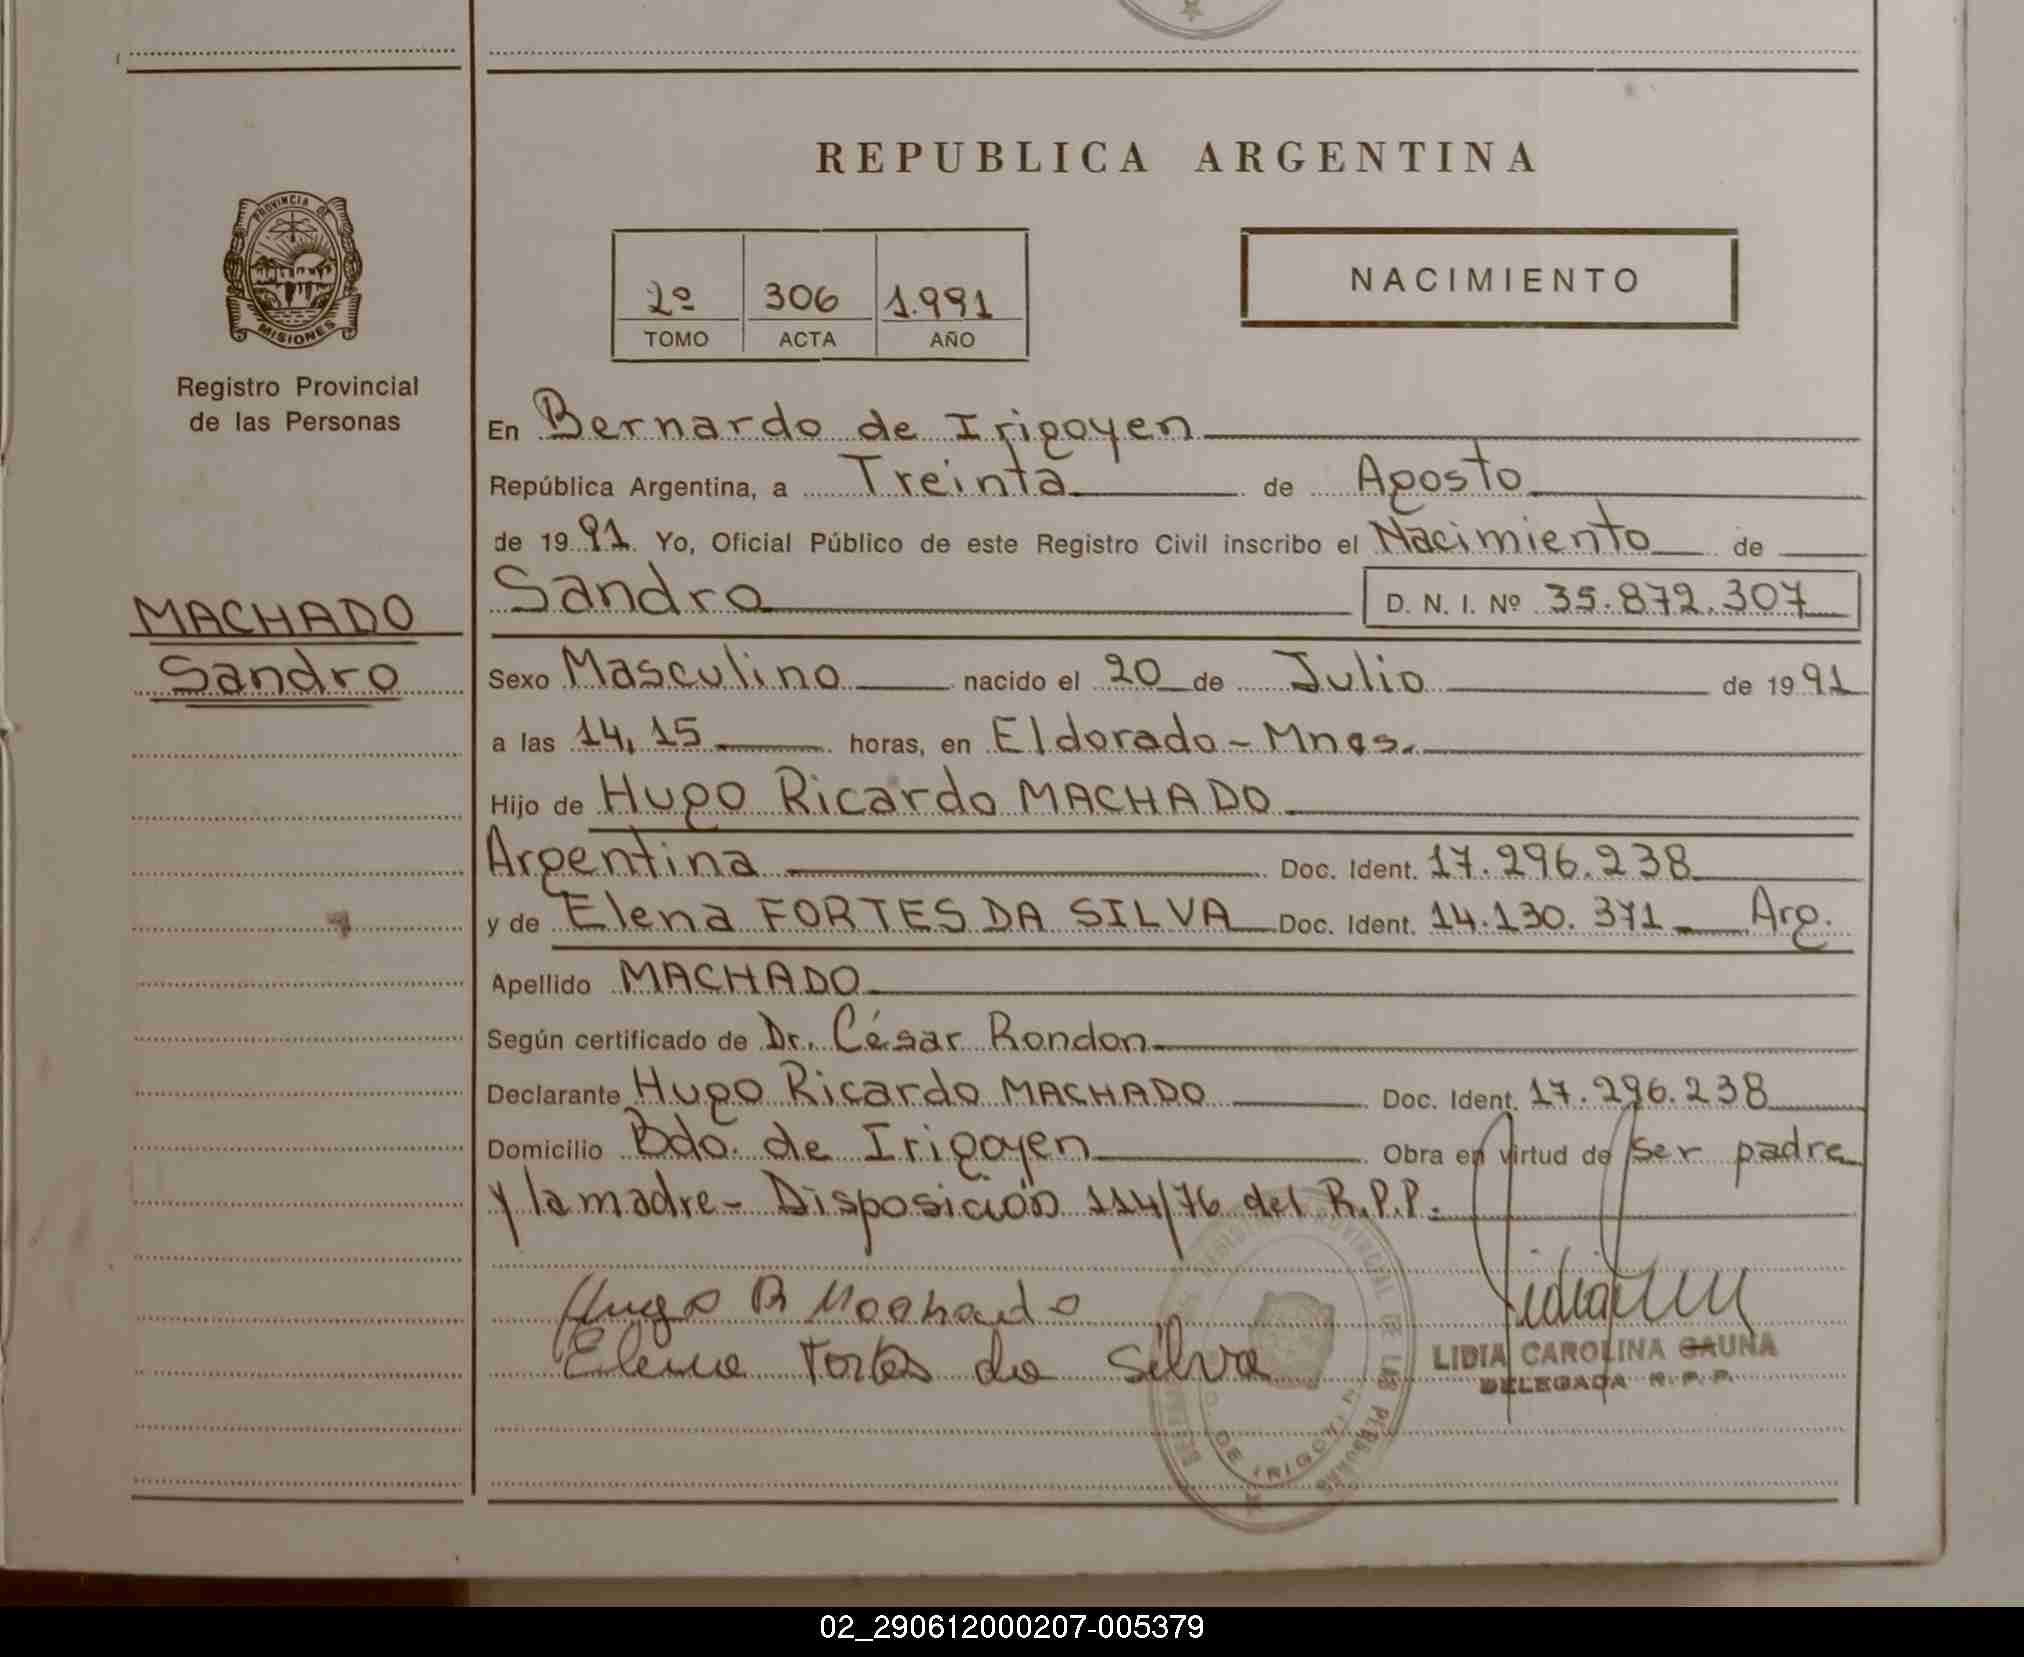 REPUBLICA ARGENTINA
PROVINCIA DE
MISIONES
Registro Provincial
de las Personas
MACHADO
Sandro
2º 306 1.991
TOMO ACTA AÑO
NACIMIENTO
En Bernardo de Irigoyen
República Argentina, a Treinta de Agosto
de 1991 Yo, Oficial Público de este Registro Civil inscribo el Nacimiento de
Sandro D. N. I. Nº 35.872.307
Sexo Masculino nacido el 20 de Julio de 1991
a las 14,15 horas, en Eldorado - Mnes.
Hijo de Hugo Ricardo MACHADO
Argentina Doc. Ident. 17.296.238
y de Elena FORTES DA SILVA Doc. Ident. 14.130.371 Arg.
Apellido MACHADO
Según certificado de Dr. César Rondon
Declarante Hugo Ricardo MACHADO Doc. Ident. 17.296.238
Domicilio Bdo. de Irigoyen Obra en virtud de ser padre
y la madre - Disposición 114/76 del R.P.P.
Hugo R Machado
Elena Fortes da Silva
LIDIA CAROLINA GAUNA
DELEGADA R. P. P.
REGISTRO PROVINCIAL DE LAS PERSONAS
DE IRIGOYEN
02_290612000207-005379